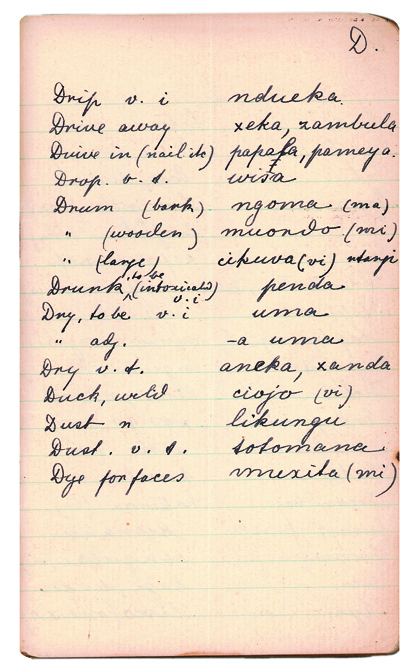 D.
Drip v. i ndueka.
Drive away xeka, zambula
Drive in (nail etc) papata, pameya.
Drop. v. t. wisa
Drum (bark) ngoma (ma)
" (wooden) muondo (mi)
" (large) cikuva (vi) ntanji
Drunk, to be (intoxicated) v. i penda
Dry, to be v. i uma
" adj. -a uma
Dry v. t. aneka, xanda
Duck, wild ciojo (vi)
Dust n likungu
Dust. v. t. totomana
Dye for faces muxita (mi)